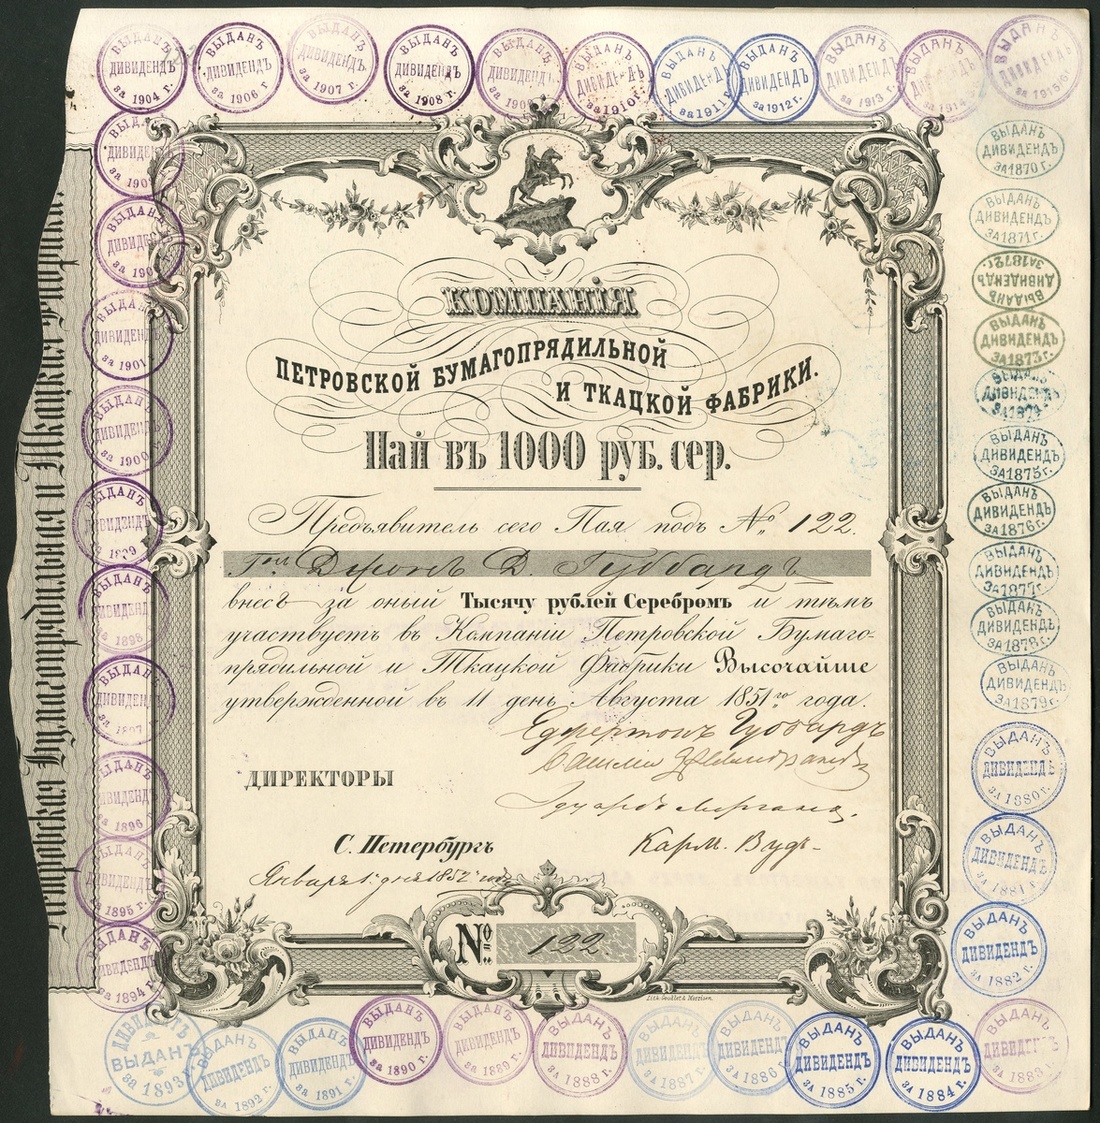 ВЫДАНЪ ДИВИДЕНДЪ за 1904 г.
ВЫДАНЪ ДИВИДЕНДЪ за 1906 г.
ВЫДАНЪ ДИВИДЕНДЪ за 1907 г.
ВЫДАНЪ ДИВИДЕНДЪ за 1908 г.
ВЫДАНЪ ДИВИДЕНДЪ
ВЫДАНЪ ДИВИДЕНДЪ за 1910 г.
ВЫДАНЪ ДИВИДЕНДЪ за 1911 г.
ВЫДАНЪ ДИВИДЕНДЪ за 1912 г.
ВЫДАНЪ ДИВИДЕНДЪ за 1913 г.
ВЫДАНЪ ДИВИДЕНДЪ за 1914
ВЫДАНЪ ДИВИДЕНДЪ за 1915 г.
КОМПАНІЯ
ПЕТРОВСКОЙ БУМАГОПРЯДИЛЬНОЙ
И ТКАЦКОЙ ФАБРИКИ.
Пай въ 1000 руб. сер.
Предъявитель сего Пая подъ № 122.
Гнъ Джонъ Д. Губбардъ
внесъ за оный Тысячу рублей Серебромъ и тѣмъ
участвуетъ въ Компаніи Петровской Бумаго-
прядильной и Ткацкой Фабрики Высочайше
утвержденной въ 11 день Августа 1851го года.
Егертонъ Губбардъ
ДИРЕКТОРЫ
Эдуардъ Морганъ.
Карм. Вудъ
С. Петербургъ
Января 1 дня 1852 года
№ 122.
Петровская Бумагопрядильная и Ткацкая Фабрика.
ВЫДАНЪ ДИВИДЕНДЪ за 190
ВЫДАНЪ ДИВИДЕНДЪ за 190
ВЫДАНЪ ДИВИДЕНДЪ за 1901
ВЫДАНЪ ДИВИДЕНДЪ за 1900
ВЫДАНЪ ДИВИДЕНДЪ за 1899
ВЫДАНЪ ДИВИДЕНДЪ за 1898
ВЫДАНЪ ДИВИДЕНДЪ за 1897
ВЫДАНЪ ДИВИДЕНДЪ за 1896
ВЫДАНЪ ДИВИДЕНДЪ за 1895 г.
ВЫДАНЪ ДИВИДЕНДЪ за 1894 г.
ВЫДАНЪ ДИВИДЕНДЪ ЗА 1870 г.
ВЫДАНЪ ДИВИДЕНДЪ ЗА 1871 г.
ВЫДАНЪ ДИВИДЕНДЪ ЗА 1872 г.
ВЫДАНЪ ДИВИДЕНДЪ ЗА 1873 г.
ВЫДАНЪ ДИВИДЕНДЪ ЗА 1874
ВЫДАНЪ ДИВИДЕНДЪ ЗА 1875 г.
ВЫДАНЪ ДИВИДЕНДЪ ЗА 1876 г.
ВЫДАНЪ ДИВИДЕНДЪ ЗА 1877 г.
ВЫДАНЪ ДИВИДЕНДЪ ЗА 1878 г.
ВЫДАНЪ ДИВИДЕНДЪ ЗА 1879 г.
ВЫДАНЪ ДИВИДЕНДЪ ЗА 1880 г.
ВЫДАНЪ ДИВИДЕНДЪ ЗА 1881 г.
ВЫДАНЪ ДИВИДЕНДЪ ЗА 1882 г.
ДИВИДЕНДЪ ВЫДАНЪ за 1893 г.
ВЫДАНЪ ДИВИДЕНДЪ за 1892 г.
ВЫДАНЪ ДИВИДЕНДЪ за 1891 г.
ВЫДАНЪ ДИВИДЕНДЪ за 1890 г.
ВЫДАНЪ ДИВИДЕНДЪ за 1889 г.
ВЫДАНЪ ДИВИДЕНДЪ за 1888 г.
ВЫДАНЪ ДИВИДЕНДЪ ЗА 1887 г.
ВЫДАНЪ ДИВИДЕНДЪ ЗА 1886 г.
ВЫДАНЪ ДИВИДЕНДЪ ЗА 1885 г.
ВЫДАНЪ ДИВИДЕНДЪ ЗА 1884 г.
ВЫДАНЪ ДИВИДЕНДЪ ЗА 1883 г.